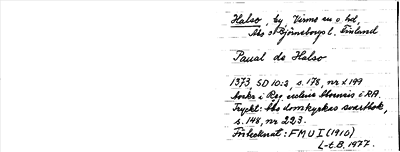 Halso, by Virmo sn o hd,
Åbo o Björneborgs l. Finland
Paual de Halso
1373, SD 10:2, s. 178, nr x 199
Avskr i Reg. ecclesie Aboensis i RA.
Tryckt: Åbo domkyrkas svartbok,
s. 148, nr 223.
Förtecknat: FMU I (1910)
L-t.B. 1977.